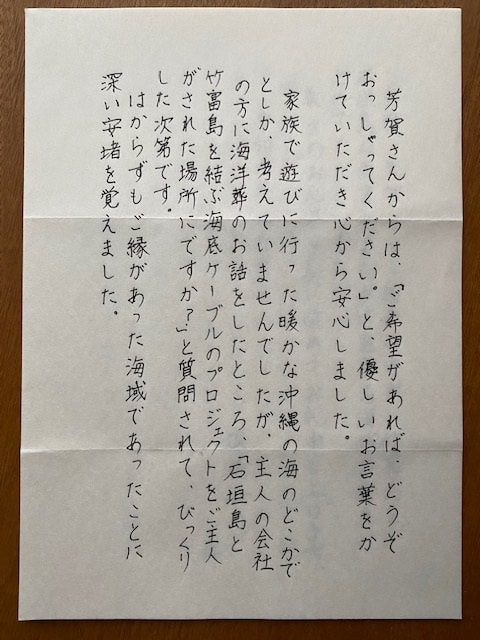 芳賀さんからは、「ご希望があれば、どうぞ
おっしゃってください。」と、優しいお言葉をか
けていただき心から安心しました。
家族で遊びに行った暖かな沖縄の海のどこかで
としか、考えていませんでしたが、主人の会社
の方に海洋葬のお話をしたところ、「石垣島と
竹富島を結ぶ海底ケーブルのプロジェクトをご主人
がされた場所にですか？」と質問されて、びっくり
した次第です。
はからずもご縁があった海域であったことに
深い安堵を覚えました。